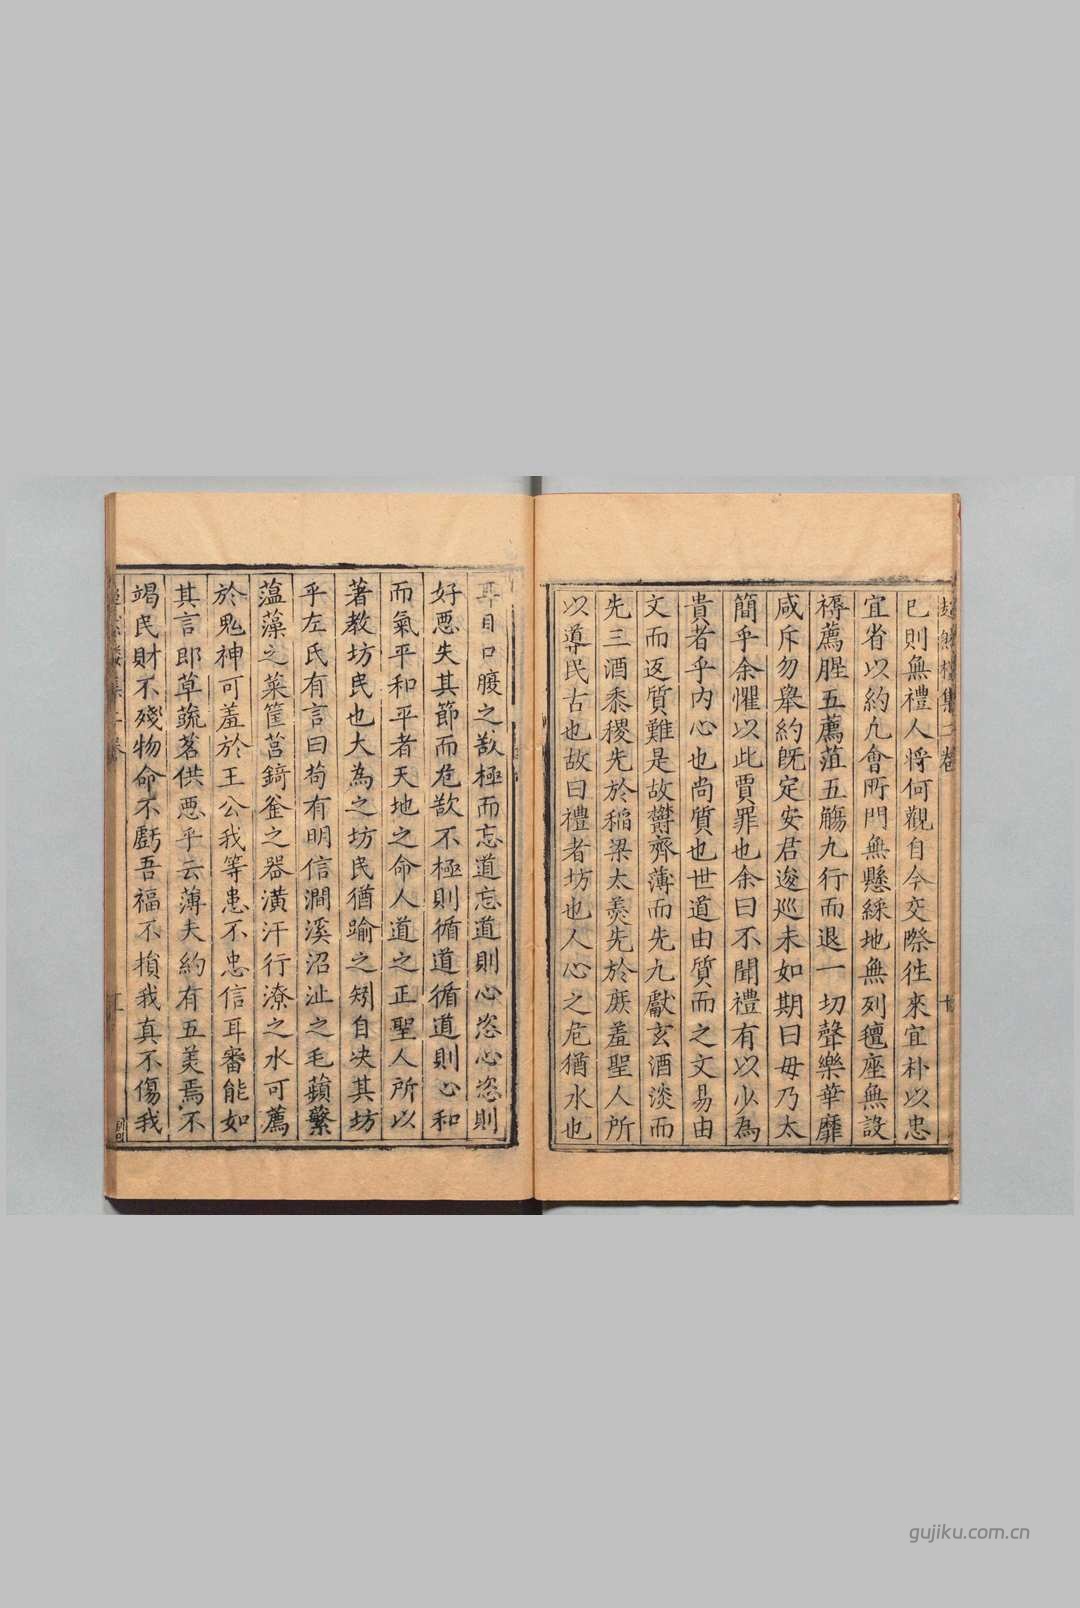 超然樓集二卷
已則無禮人將何觀自今交際徃來宜朴以忠
宜省以約凢會所門無懸綵地無列氊座無設
褥薦腥五薦葅五觴九行而退一切聲樂華靡
咸斥勿舉約旣定安君逡巡未如期曰毋乃太
簡乎余懼以此賈罪也余曰不聞禮有以少為
貴者乎內心也尚質也世道由質而之文易由
文而返質難是故欝齊薄而先九獻玄酒淡而
先三酒黍稷先於稲粱太羮先於庶羞聖人所
以導民古也故曰禮者坊也人心之危猶水也
耳目口腹之欲極而忘道忘道則心恣心恣則
好惡失其節而危欲不極則循道循道則心和
而氣平和平者天地之命人道之正聖人所以
著教坊民也大為之坊民猶踰之矧自决其坊
乎左氏有言曰苟有明信澗溪沼沚之毛蘋蘩
薀藻之菜筐筥錡釜之器潢汙行潦之水可薦
於鬼神可羞於王公我等患不忠信耳審能如
其言即草蔬茗供惡乎云薄夫約有五美焉不
竭民財不殘物命不虧吾福不損我真不傷我
gujiku.com.cn